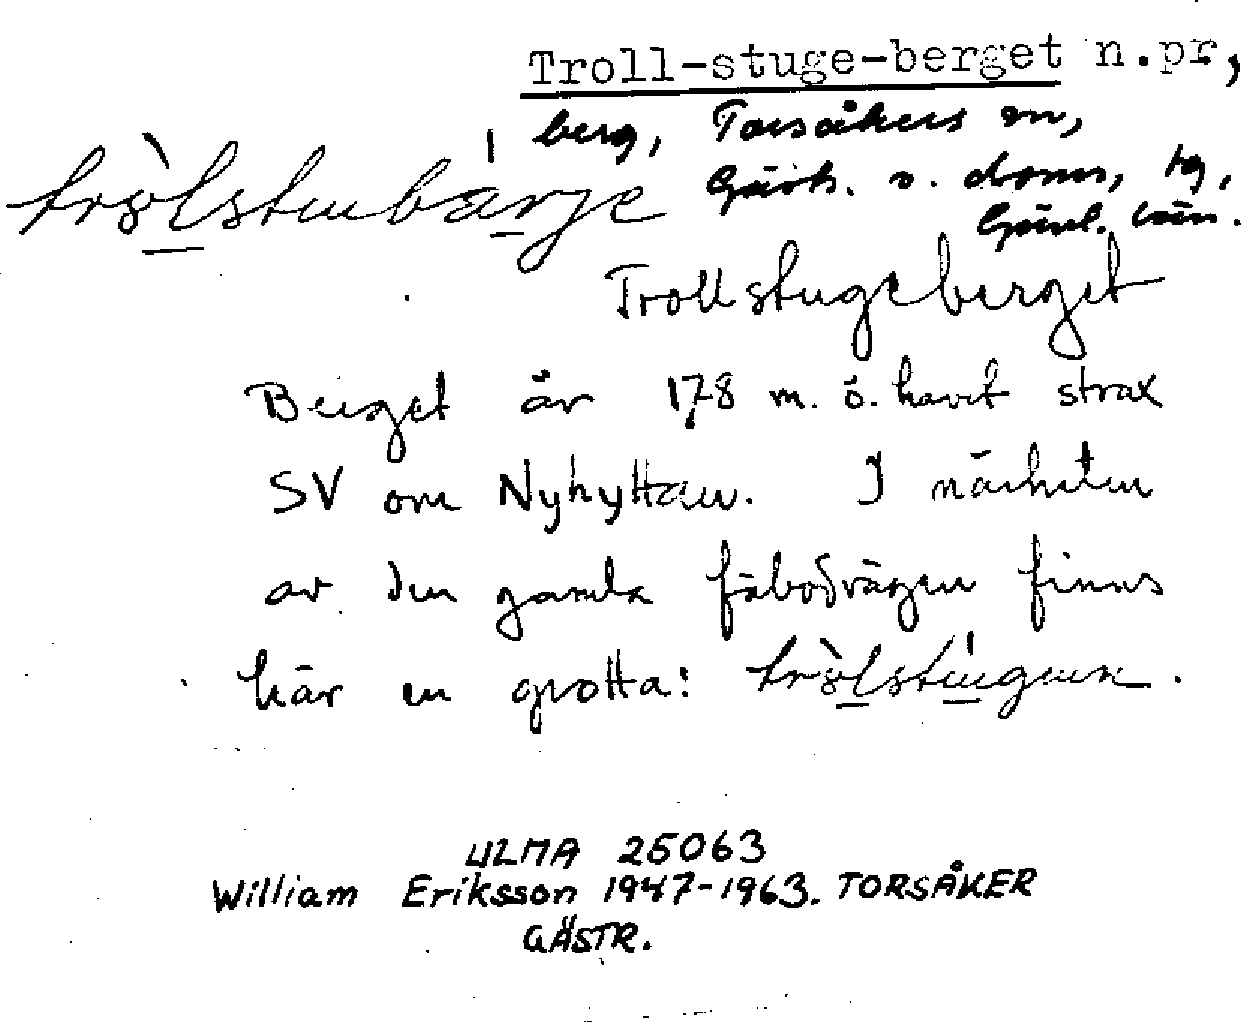 Troll-stuge-berget n.pr,
berg, Torsåkers sn,
Gästr. v. doms, tg,
Gävl. län.
Trollstugeberget
Berget är 178 m. ö. havet strax
SV om Nyhyttan. I närheten
av den gamla fäbodvägen finns
här en grotta:
ULMA 25063
William Eriksson 1947-1963. TORSÅKER
GÄSTR.